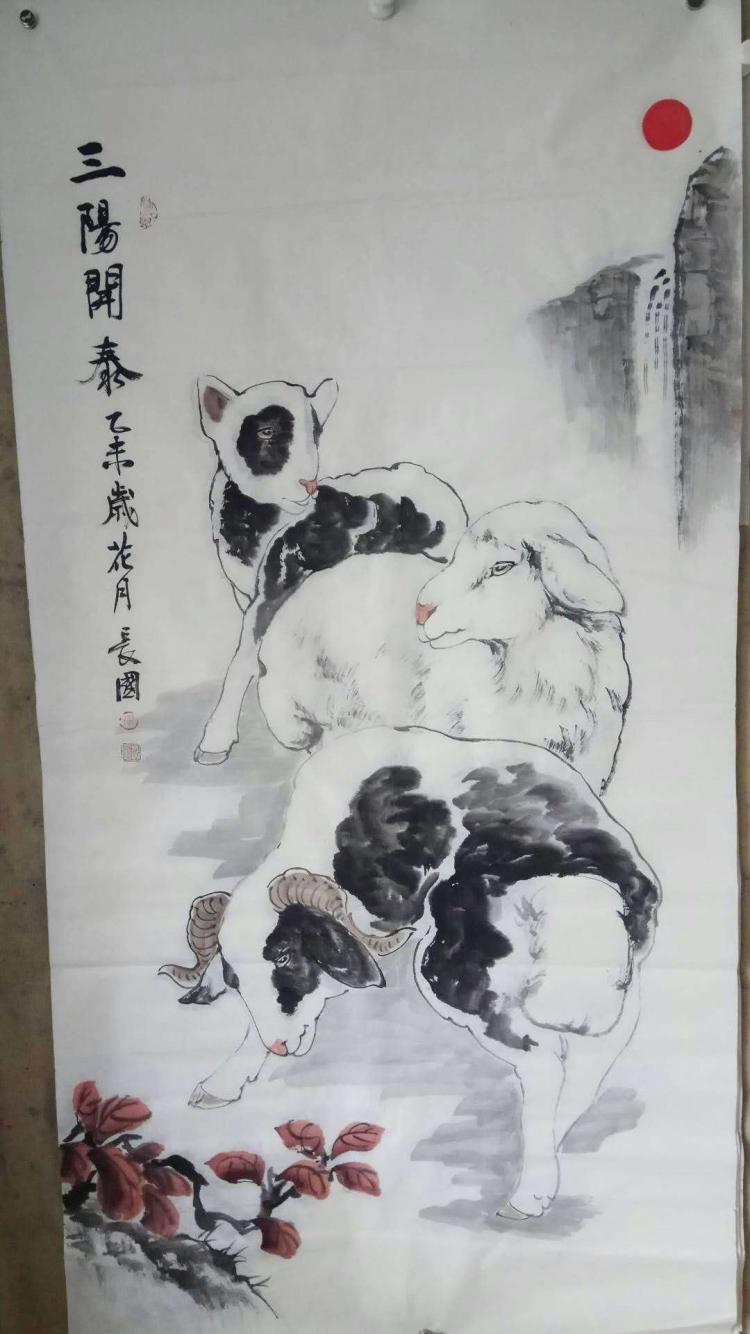 三陽開泰乙未歲花月長國